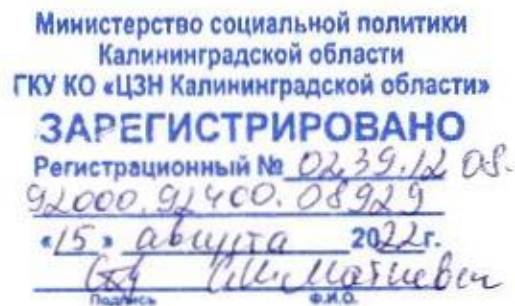 Министерство социальной политики
Калининградской области
ГКУ КО «ЦЗН Калининградской области»
ЗАРЕГИСТРИРОВАНО
Регистрационный № 02.39.12.08.
92000.92400.08929
«15» августа 2022г.
Подпись Ф.И.О.